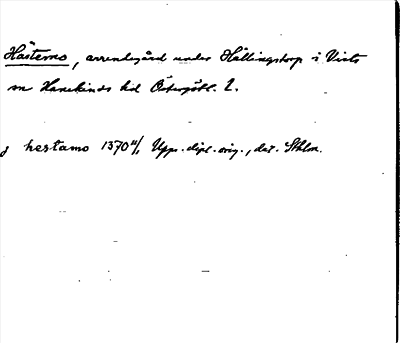 Hästemo, arrendegård under Hållingstorp i Vists
sn Hanekinds hd Östergötl. l.
j hestamo 1370 11/1 Upps. dipl. orig., dat. Sthlm.